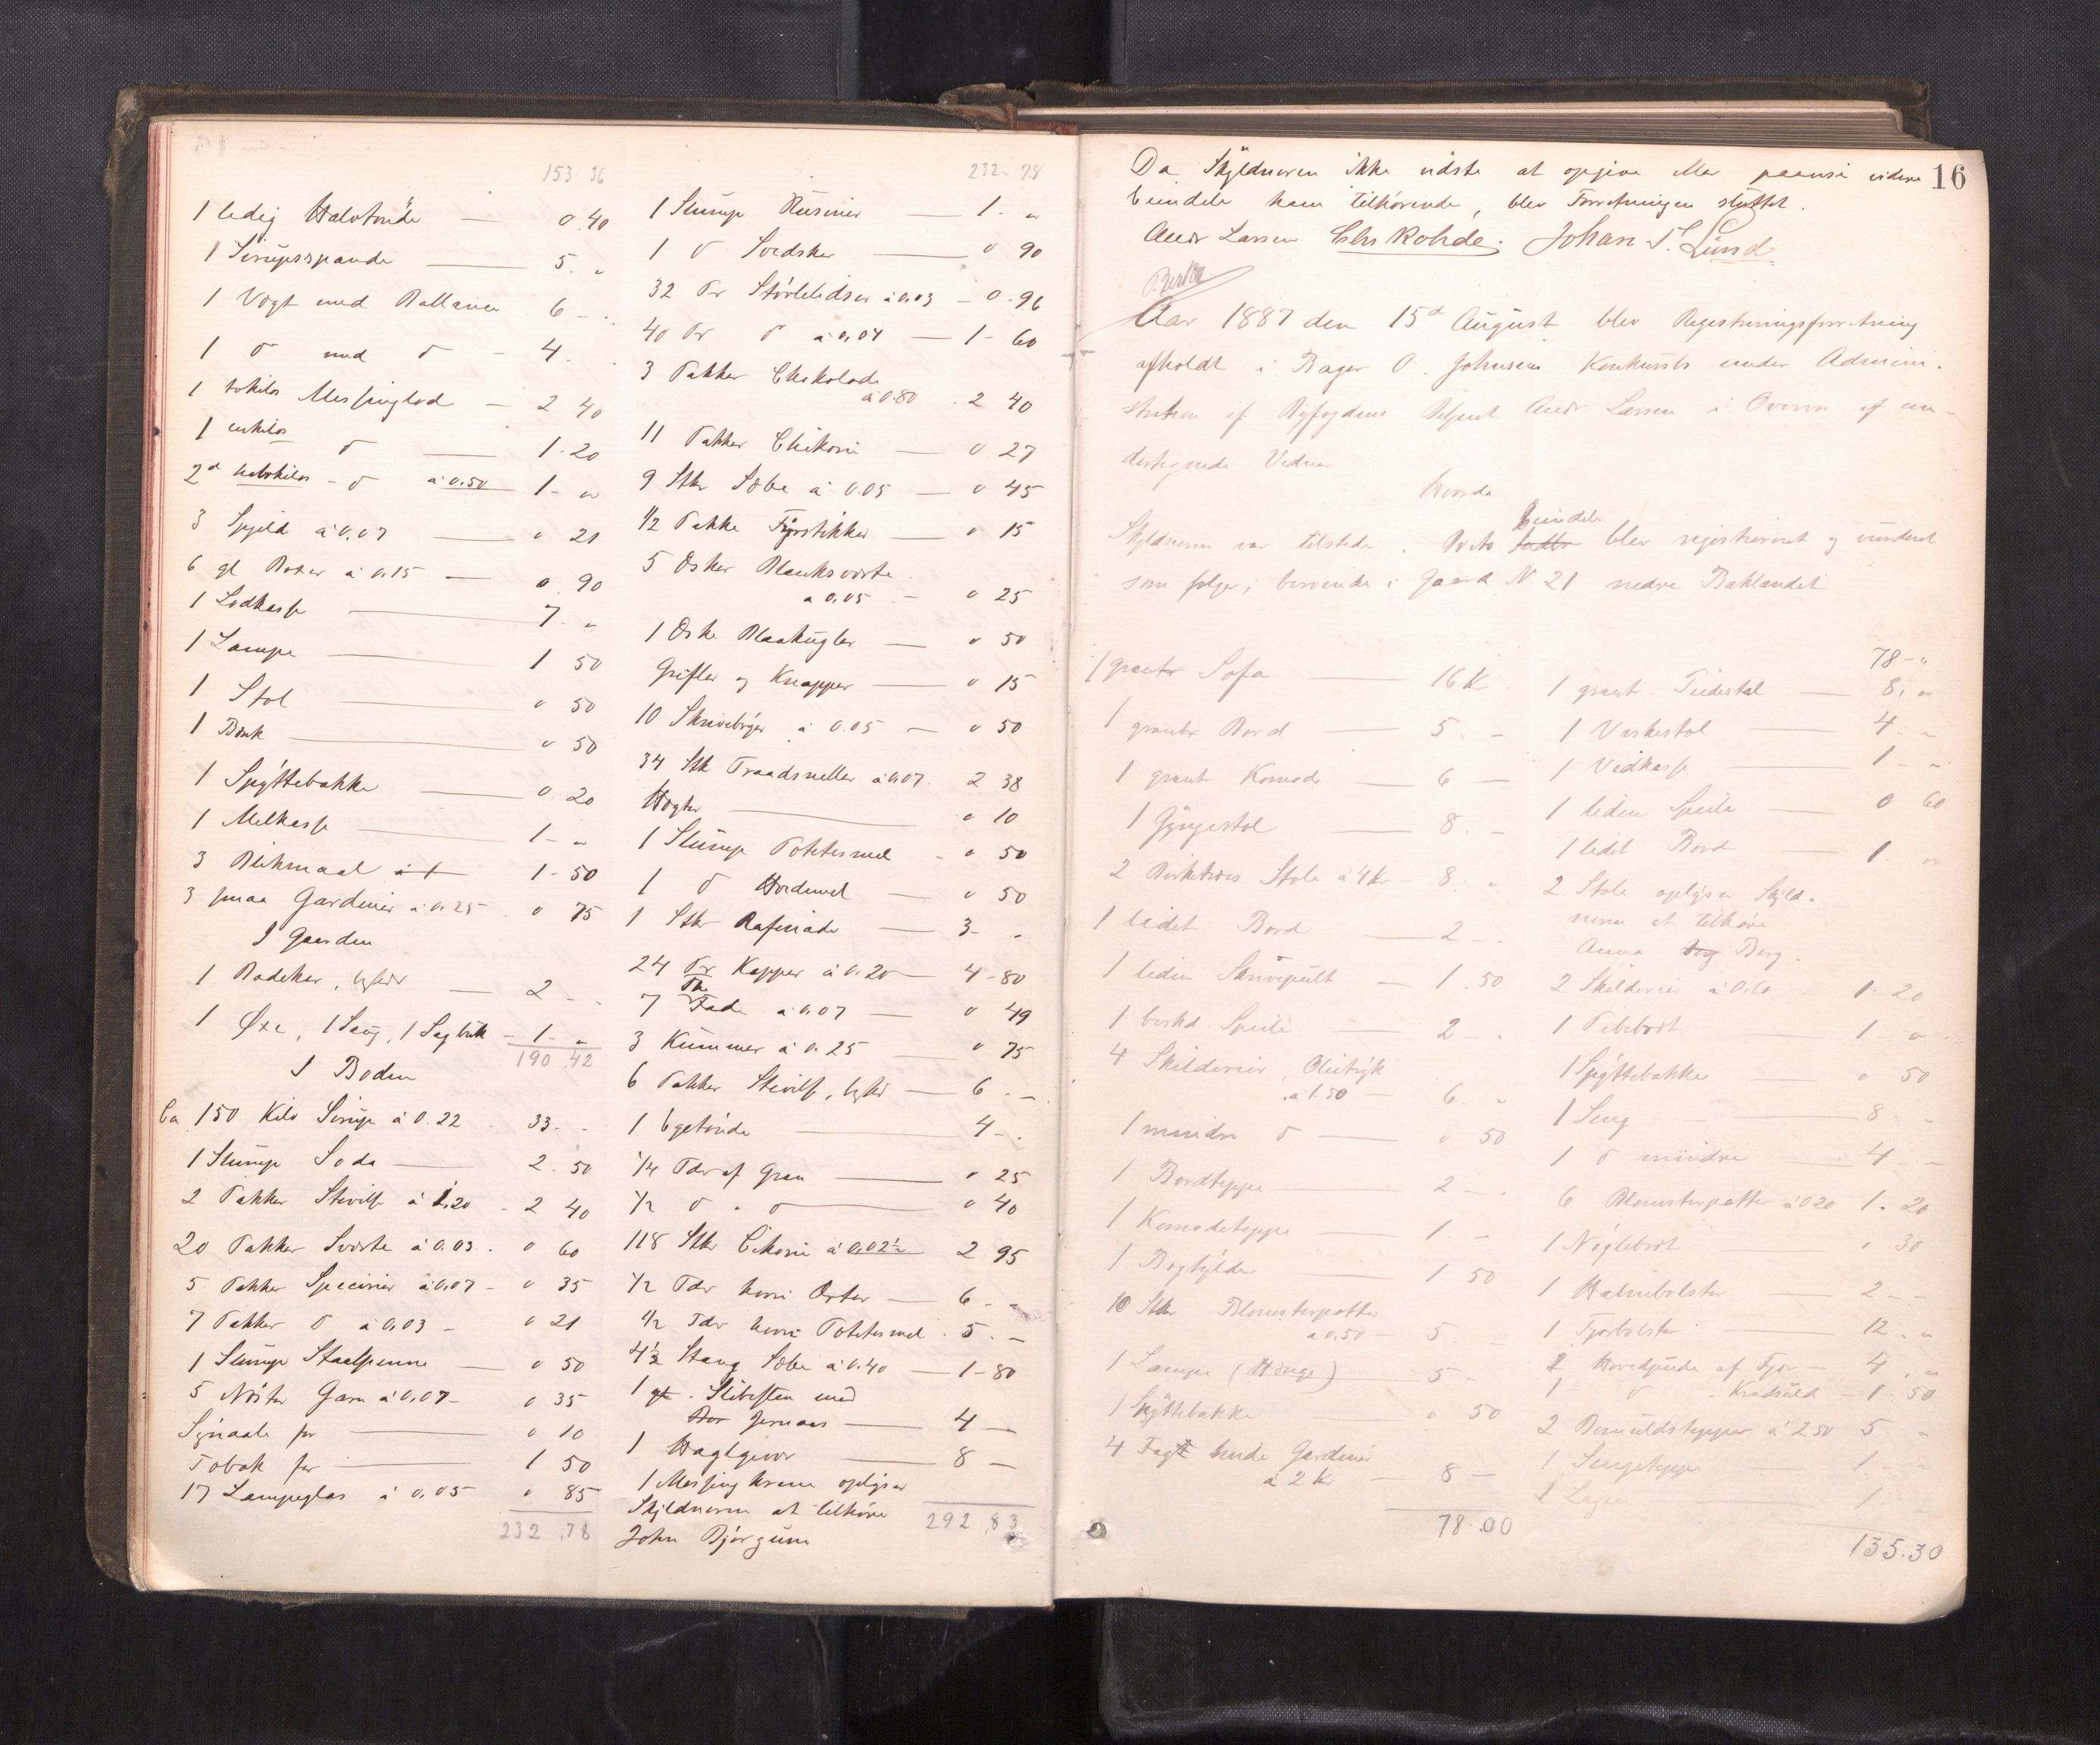 153.36
1 ledig Halvtønde — 0.40
1 Sirupsspande — 5. "
1 Vægt med Ballancer 6 - "
1 d med d - 4. "
1 tokilos Messinglod — 2 40
1 enkilos d — 1.20
2 d halvkilos - d à 0.50 1 - "
3 Speild à 0.07 — " 21
6 gl Boxer à 0.15 — 0.90
1 Lodkasse — 7. "
1 Lampe — 1 50
1 Stol — " 50
1 Bænk — " 50
1 Spyttebakke — 0.20
1 Melkasse — 1 - "
3 Blikmaal 1.50
3 smaa Gardiner à 0.25 " 75
I Gaarden
1 Badekar, — 2 - "
1 Øxe, 1 Saug, 1 Sagbuk — 1 - "
190.42
I Boden
Ca 150 Kilo Sirup à 0.22 33. -
1 Slump Soda — 2.50
2 Pakker Stivelse à 1.20 - 2 40
20 Pakker Sværte à 0.03. " 60
5 Pakker Specerier à 0.07 - " 35
7 Pakker d à 0.03 - " 21
1 Slump Staalpenne — " 50
5 Nøster Garn à 0.07 - " 35
Synaale for — " 10
Tobak for — 1 50
17 Lampeglas à 0.05 " 85
232.78
232.78
1 Slump Rusiner — 1 - "
1 d Svedsker — " 90
32 Pr Støvlelidser à 0.03 - 0.96
40 Pr d à 0.04 — 1 - 60
3 Pakker Chokolade
à 0.80 . 2 40
11 Pakker Chikori — " 27
9 Stkr Sæbe à 0.05 — " 45
1/2 Pakke Fyrstikker — " 15
5 Æsker Blanksværte
à 0.05 - " 25
1 Æske Blaakugler — " 50
Grifler og Knapper — " 15
10 Skrivebøger à 0.05 — " 50
34 Stk Traadsneller à 0.07. 2 38
Hægter — " 10
1 Slump Potetesmel - " 50
1 d Hvedemel — " 50
1 Stk Rafinade — 3 - "
24 Pr Kopper à 0.20 — 4 - 80
7 The Fade à 0.07 — " 49
3 Kummer à 0.25 — " 75
6 Pakker Stivelse, — 6 - -
1 Egetønde — 4 - .
1/4 Tdr af Gran — " 25
1/2 d . d — " 40
118 Stkr Cikori à 0,02½ 2 95
1/2 Tdr hvori Erter — 6 - -
1/2 Tdr hvori Potetesmel . 5. -
4½ Stang Sæbe à 0.40 — 1 - 80
1 gl. Slibesten med
Jernaas — 4 -
1 Haglgevær — 8 -
1 Messingkrane oplyser
Skyldneren at tilhøre
John Bjørgum
292,83
16
Da Skyldneren ikke vidste at opgive eller paavise videre
Eiendele ham tilhørende, blev Forretningen sluttet.
Andr Larsen Chs Rohde. Johan S. Lund
Aar 1887 den 15d August blev Registreringsforretning
afholdt i Bager O. Johnsens Konkursbo under Admini-
stration af Byfogdens Betjent Andr Larsen i Overvær af un-
dertegnede Vidner
Hvorda
Skyldneren var tilstede. Boets Eiendele blev registreret og vurderet
som følger, beroende i Gaard N 21 nedre Baklandet
1 grønt Sofa — 16 Kr
1 grønt Bord — 5. -
1 grønt Komode — 6 —
1 Gyngestol — 8. -
2 Birketræes Stole à 4 Kr - 8. "
1 lidet Bord — 2 - .
1 liden Skrivepult — 1.50
1 beskd. Speile — 2 - .
4 Skilderier, Olietryk
à 1.50 — 6. "
1 mindre d — " 50
1 Bordteppe — 2 - .
1 Komodeteppe — 1. -
1 Boghylde — 1 50
10 Stkr Blomsterpotter
à 0,50 — 5. -
1 Lampe (Hænge) — 5 -
1 Spyttebakke — " 50
4 Fagt hvide Gardiner
à 2 Kr — 8 —
78.00
78 - "
1 grønt. Piedestal — 8, "
1 Vaskestol — 4 - "
1 Vedkasse — 1 - "
1 liden Speile — 0 60
1 lidet Bord — 1. "
2 Stole oplyser Skyld-
neren at tilhøre
Anna Berg.
2 Skilderier à 0.60 - 1 20
1 Pibebræt — 1 "
1 Spyttebakke — " 50
1 Seng — 8. -
1 d mindre — 4 - -
6 Blomsterpotter à 0.20 1.20
1 Nøglebræt — " 30
1 Halmbolster — 2 - -
1 Fjærbolster — 12. "
1 Hovedpude af Fjær — 4. "
1 d . Krøluld — 1.50
2 Bomuldstepper à 2.50 5 "
1 Sengeteppe — 1. -
1 Lagen — 1. -
135.30